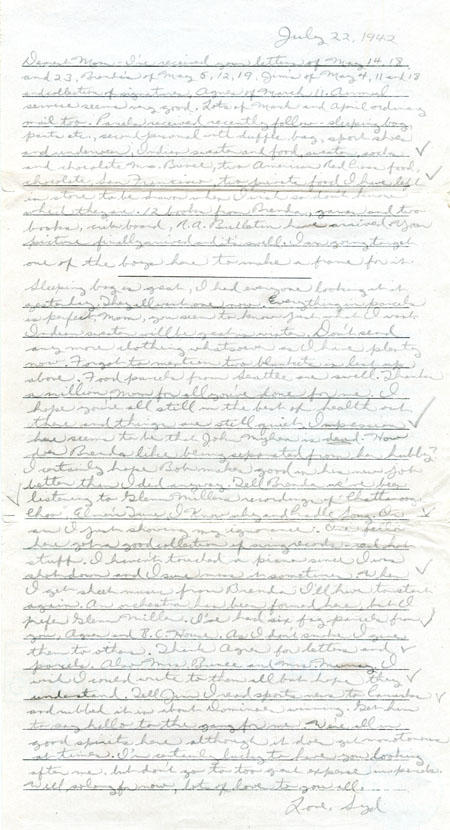 July 22, 1942
Dearest Mom - I've received your letters of May 14, 18
and 23, Barbie's of May 5, 12, 19, Jim's of May 4, 11 and 18
and collection of signatures, Agnes of March 11. Airmail
service seems very good. Lots of March and April ordinary
mail too. Parcels received recently follow - sleeping bag
parts etc, second personal with duffle bag, sport shoes
and underwear, Indian sweater and food, sweater, socks
and chocolate Mrs. Bunce, two American Red Cross food,
chocolate San Francisco, two private food I have left
in store to be drawn when I wish so don't know
what they are. 12 books from Brenda, games and two
books, crib board, R.A. Bulletin have arrived. Your
picture finally arrived and it's swell. I am going to get
one of the boys here to make a frame for it.
Sleeping bag is great, I had everyone looking at it
yesterday. They all want one now. Everything in parcels
is perfect Mom, you seem to know just what I want.
Indian sweater will be great in winter. Don't send
any more clothing whatsoever as I have plenty
now. Forgot to mention two blankets in list
above. Food parcels from Seattle are swell. Thanks
a million Mom for all you've done for me. I
hope you're all still in the best of health out
there and things are still quiet. Impression
here seems to be that John is dead. How
does Brenda like being separated from her hubby?
I certainly hope Bob makes good in his new job
better than I did anyway. Tell Brenda we've been
listening to Glenn Miller's recordings of Chattanooga
Choo', Elmer's Tune, I Know why and Song. Or
am I just showing my ignorance. One fellow
here got a good collection of swing records - red hot
stuff. I haven't touched a piano since I was
shot down and I sure miss it sometimes. When
I get sheet music from Brenda I'll have to start
again. An orchestra has been formed here but I
prefer Glenn Miller. I've had six fag parcels from
you, Agnes and B.C. House. As I don't smoke I give
them to others. Thank Agnes for letters and
parcels. Also Mrs. Bunce and Mrs. I
wish I could write to them all but hope they
understand. Tell Jim I read sports news to Canadians
and rubbed it in about Dominoes winning. Get him
to say hello to the gang for me. We're all in
good spirits here although it does get monotonous
at times. I'm certainly lucky to have you looking
after me, but don't go to too great expense in parcels.
Well so long for now, lots of love to you all
Love, Syd